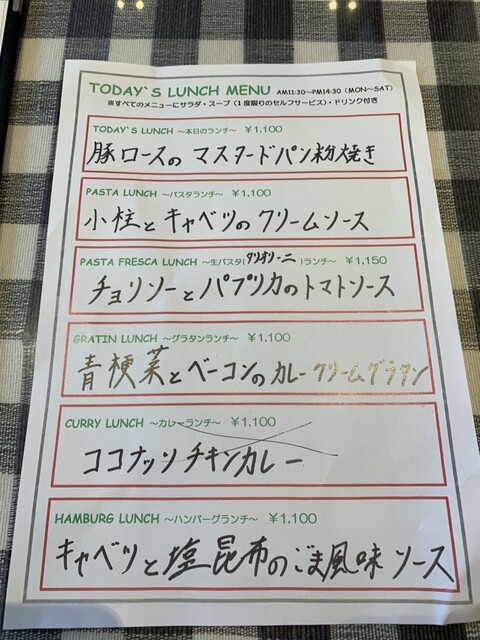 TODAY`S LUNCH MENU AM11:30~PM14:30 (MON~SAT)
※すべてのメニューにサラダ・スープ(1度限りのセルフサービス)・ドリンク付き
TODAY`S LUNCH ~本日のランチ~ ¥1,100
豚ロースの マスタードパン粉焼き
PASTA LUNCH ~パスタランチ~ ¥1,100
小柱と キャベツの クリームソース
PASTA FRESCA LUNCH ~生パスタ(タリオリーニ)ランチ~ ¥1,150
チョリソーとパプリカのトマトソース
GRATIN LUNCH ~グラタンランチ~ ¥1,100
青梗菜とベーコンのカレークリームグラタン
CURRY LUNCH ~カレーランチ~ ¥1,100
ココナッツチキンカレー
HAMBURG LUNCH ~ハンバーグランチ~ ¥1,100
キャベツと塩昆布のごま風味 ソース